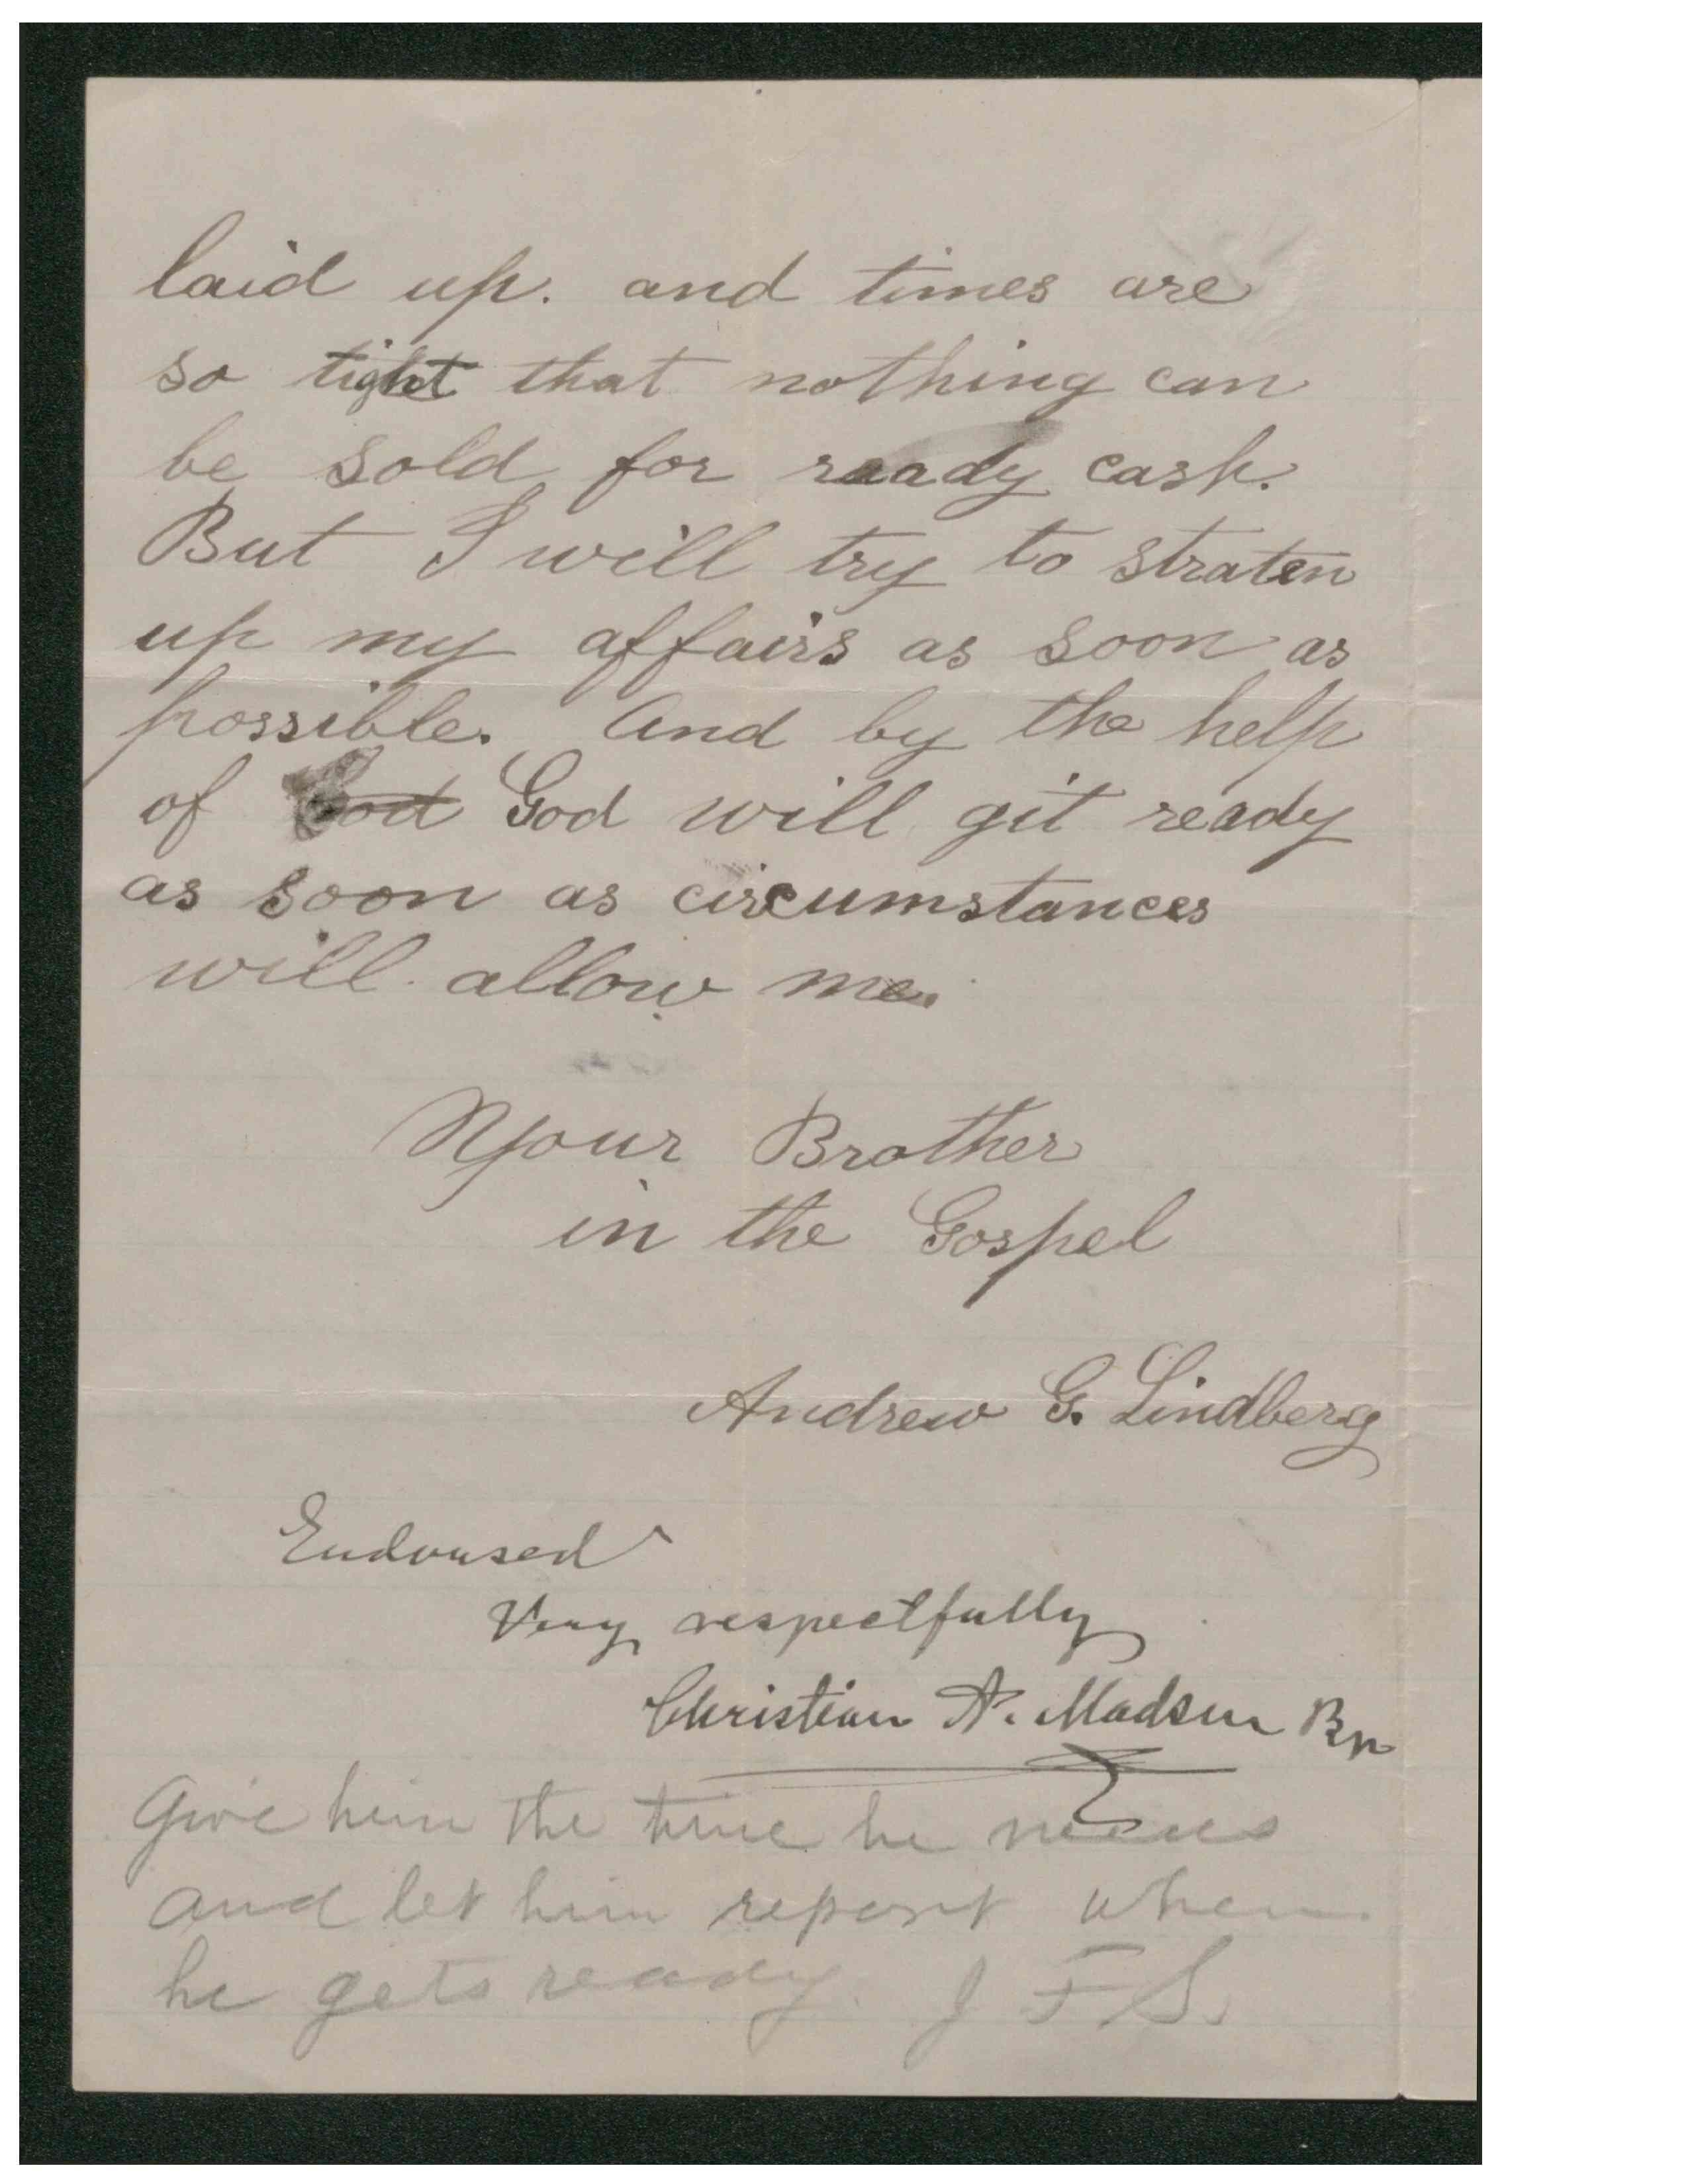 laid up. and times are
so tight that nothing can
be sold for ready cash.
But I will try to straten
up my affairs as soon as
possible. And by the help
of God God will git ready
as soon as circumstances
will allow me.
Your Brother
in the Gospel
Andrew G. Lindberg
Endorsed
Very respectfully
Christian A. Madsen Bp
Give him the time he needs
and let him report when
he gets ready. J F S.